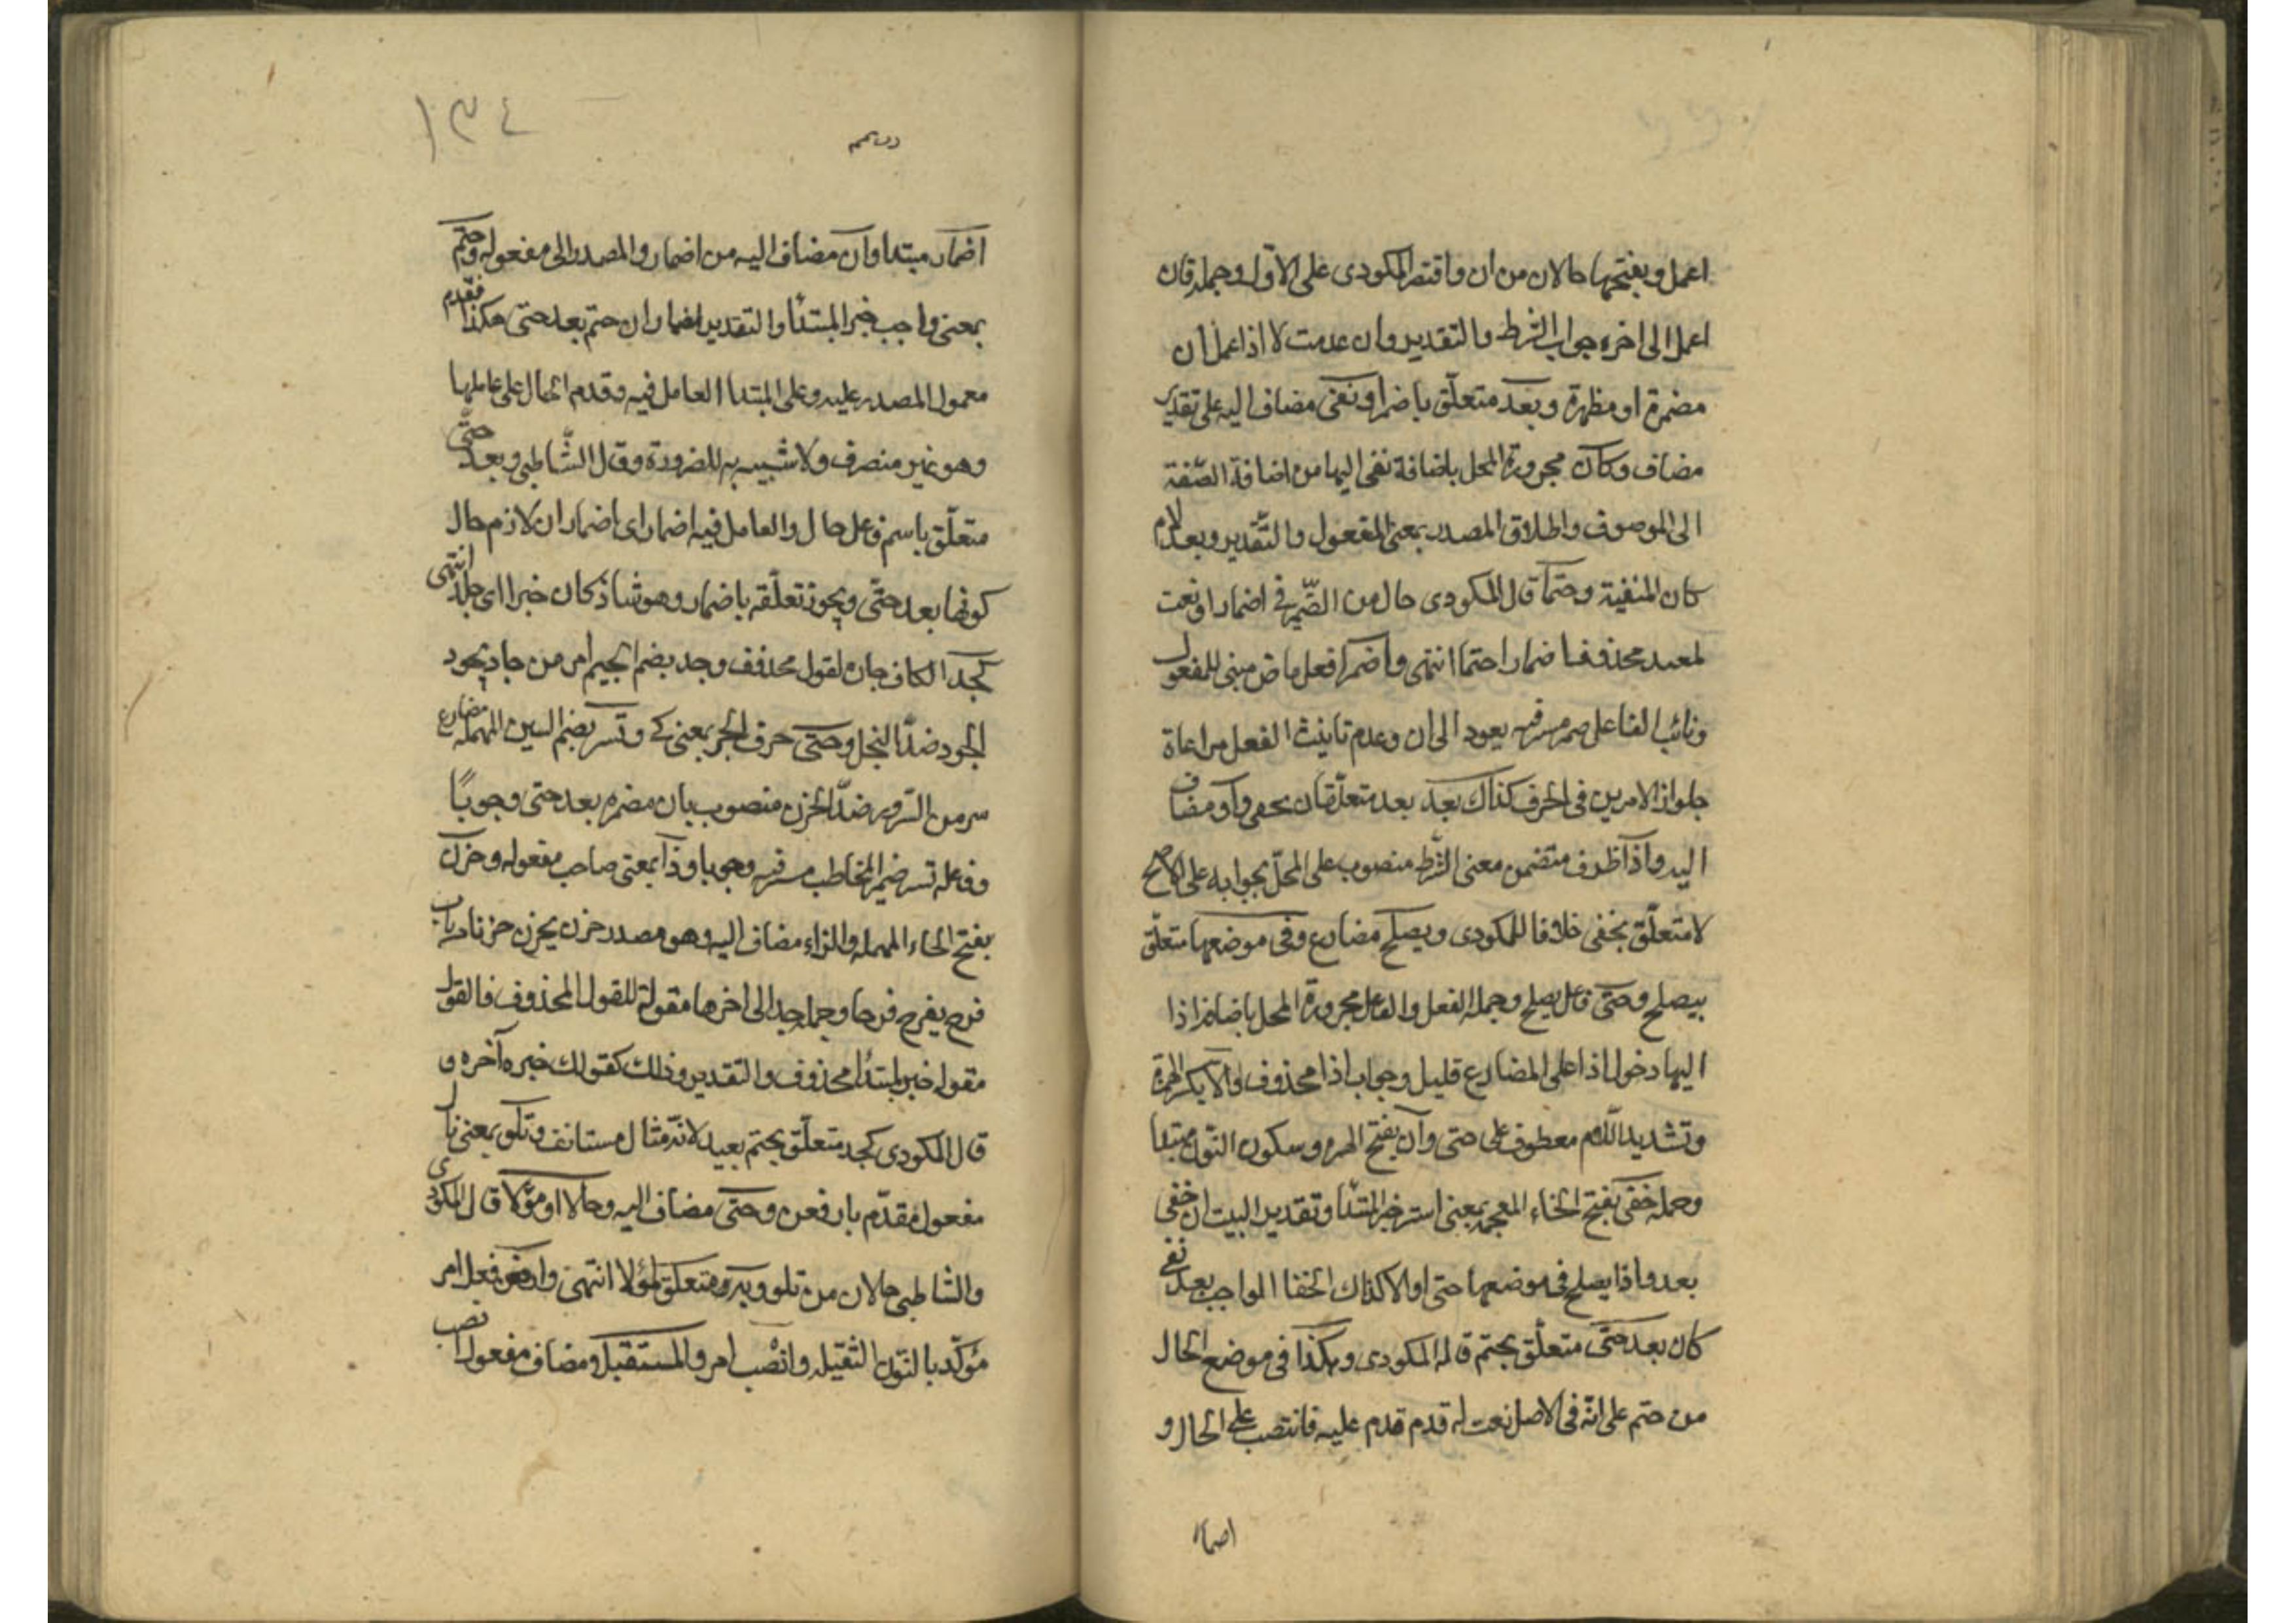 اعمل وبفتحها حالان من ان واقتصر المكودى على الاول وجملة فان
اعمل الى اخره جواب الشرط والتقدير وان عدمت لا اذا اعمل ان
مضمرة او مظهرة وبعد متعلّق باضمرا ونفى مضاف اليه على تقدير
مضاف وكان مجرورة المحل باضافة نفى اليها من اضافة الصّفة
الى الموصوف واطلاق المصدر بمعنى المفعول والتّقدير وبعد لام
كان المنفية وحتما قال المكودى حال من الضّمير فى اضمار او نعت
لمصدر محذوف اضمارا حتما انتهى واضمرا فعل ماض مبنى للمفعول
ونائب الفاعل ضمير مستتر فيه يعود الى ان وعدم تانيث الفعل مراعاة
جلواز الامرين فى الحرف كذاك بعد بعد متعلّقان بخفى واو مضاف
اليه واذا ظرف متضمن معنى الشّرط منصوب على المحلّ بجوابه على الاصح
لا متعلّق بخفى خلافا للمكودى ويصلح مضارع وفى موضعها متعلّق
بيصلح وحتى فاعل يصلح وجملة الفعل والفاعل مجرورة المحل باضافة اذا
اليها دخول اذا على المضارع قليل وجواب اذا محذوف والا بكسر الهمزة
وتشديد اللام معطوف على حتى وان بفتح الهمزه وسكون النّون مبتدا
وجملة خفى بفتح الخاء المعجمة بمعنى استتر خبر المبتدا وتقدير البيت ان خفى
بعد واذا يصلح فى موضعها حتى او الا كذاك الخفا الواجب بعد نفى
كان بعد حتّى متعلّق بحتم قاله المكودى وهكذا فى موضع الحال
من حتم على انّه فى الاصل نعت له قدم قدم عليه فانتصب على الحال و
اضمار
١٣٤
اضمار مبتدا وان مضاف اليه من اضمار والمصدر الى مفعوله وحتم
بمعنى واجب خبر المبتدأ والتقدير اضمار ان حتم بعد حتى هكذا فقدم
معمول المصدر عليه وعلى المبتدا العامل فيه وقدم الحال على عاملها
وهو غير منصرف ولا شبيه به للضرورة وقال الشّاطبى وبعد حتّى
متعلّق باسم فاعل حال والعامل فيه اضمار اى اضمار ان لازم حال
كونها بعد حتّى ويجوز تعلّقه باضمار وهو شاذ كان خبرا اى جلد انتهى
كجد الكاف جارة لقول محذوف وجد بضم الجيم امر من جاد يجود
الجود ضدّ البخل وحتى حرف الجر بمعنى كى وتسر بضم السين المهملة مضارع
سر من السّرور ضدّ الحزن منصوب بان مضمره بعد حتى وجوبًا
وفاعله تسر ضمير المخاطب مستتر فيه وجوبا وذا بمعنى صاحب مفعوله وحزن
بفتح الحاء المهملة والزاء مضاف اليه وهو مصدر حزن يحزن حزنا من باب
فرح يفرح فرحا وجملة جد الى اخرها مقولة للقول المحذوف فالقول
مقوله خبر لمبتدأ محذوف والتقدير وذلك كقولك خبره آخره و
قال المكودى كجد متعلّق بحتم بعيد لانّه مثال مستانف وتلو بمعنى تال
مفعول مقدّم بارفعن وحتّى مضاف اليه وحالا او مؤوّلا قال المكودى
والشّاطبى حالان من تلو وبه ومتعلق لمؤلا انتهى وارفعن فعل امر
مؤكّد بالنّون الثقيله وانصب امر والمستقبلا ومضاف مفعول انصب